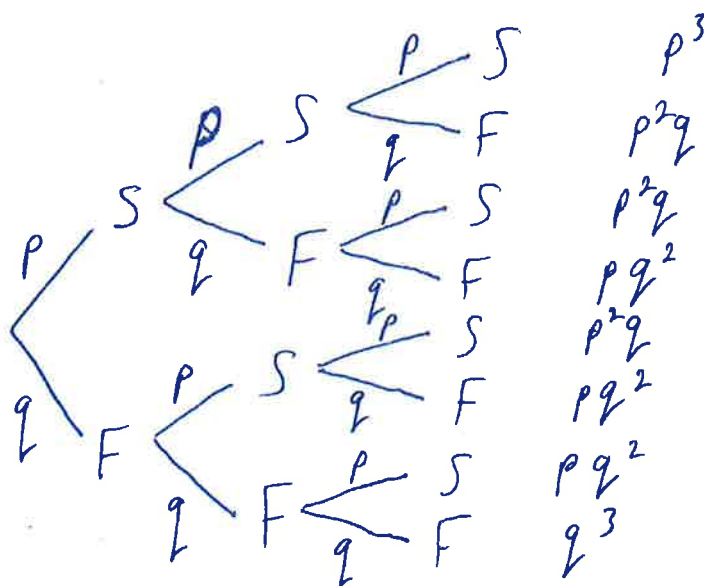 p S p³
p S q F p²q
p S q F p S p²q
q F pq²
q F p S p S p²q
q F pq²
q F p S pq²
q F q³